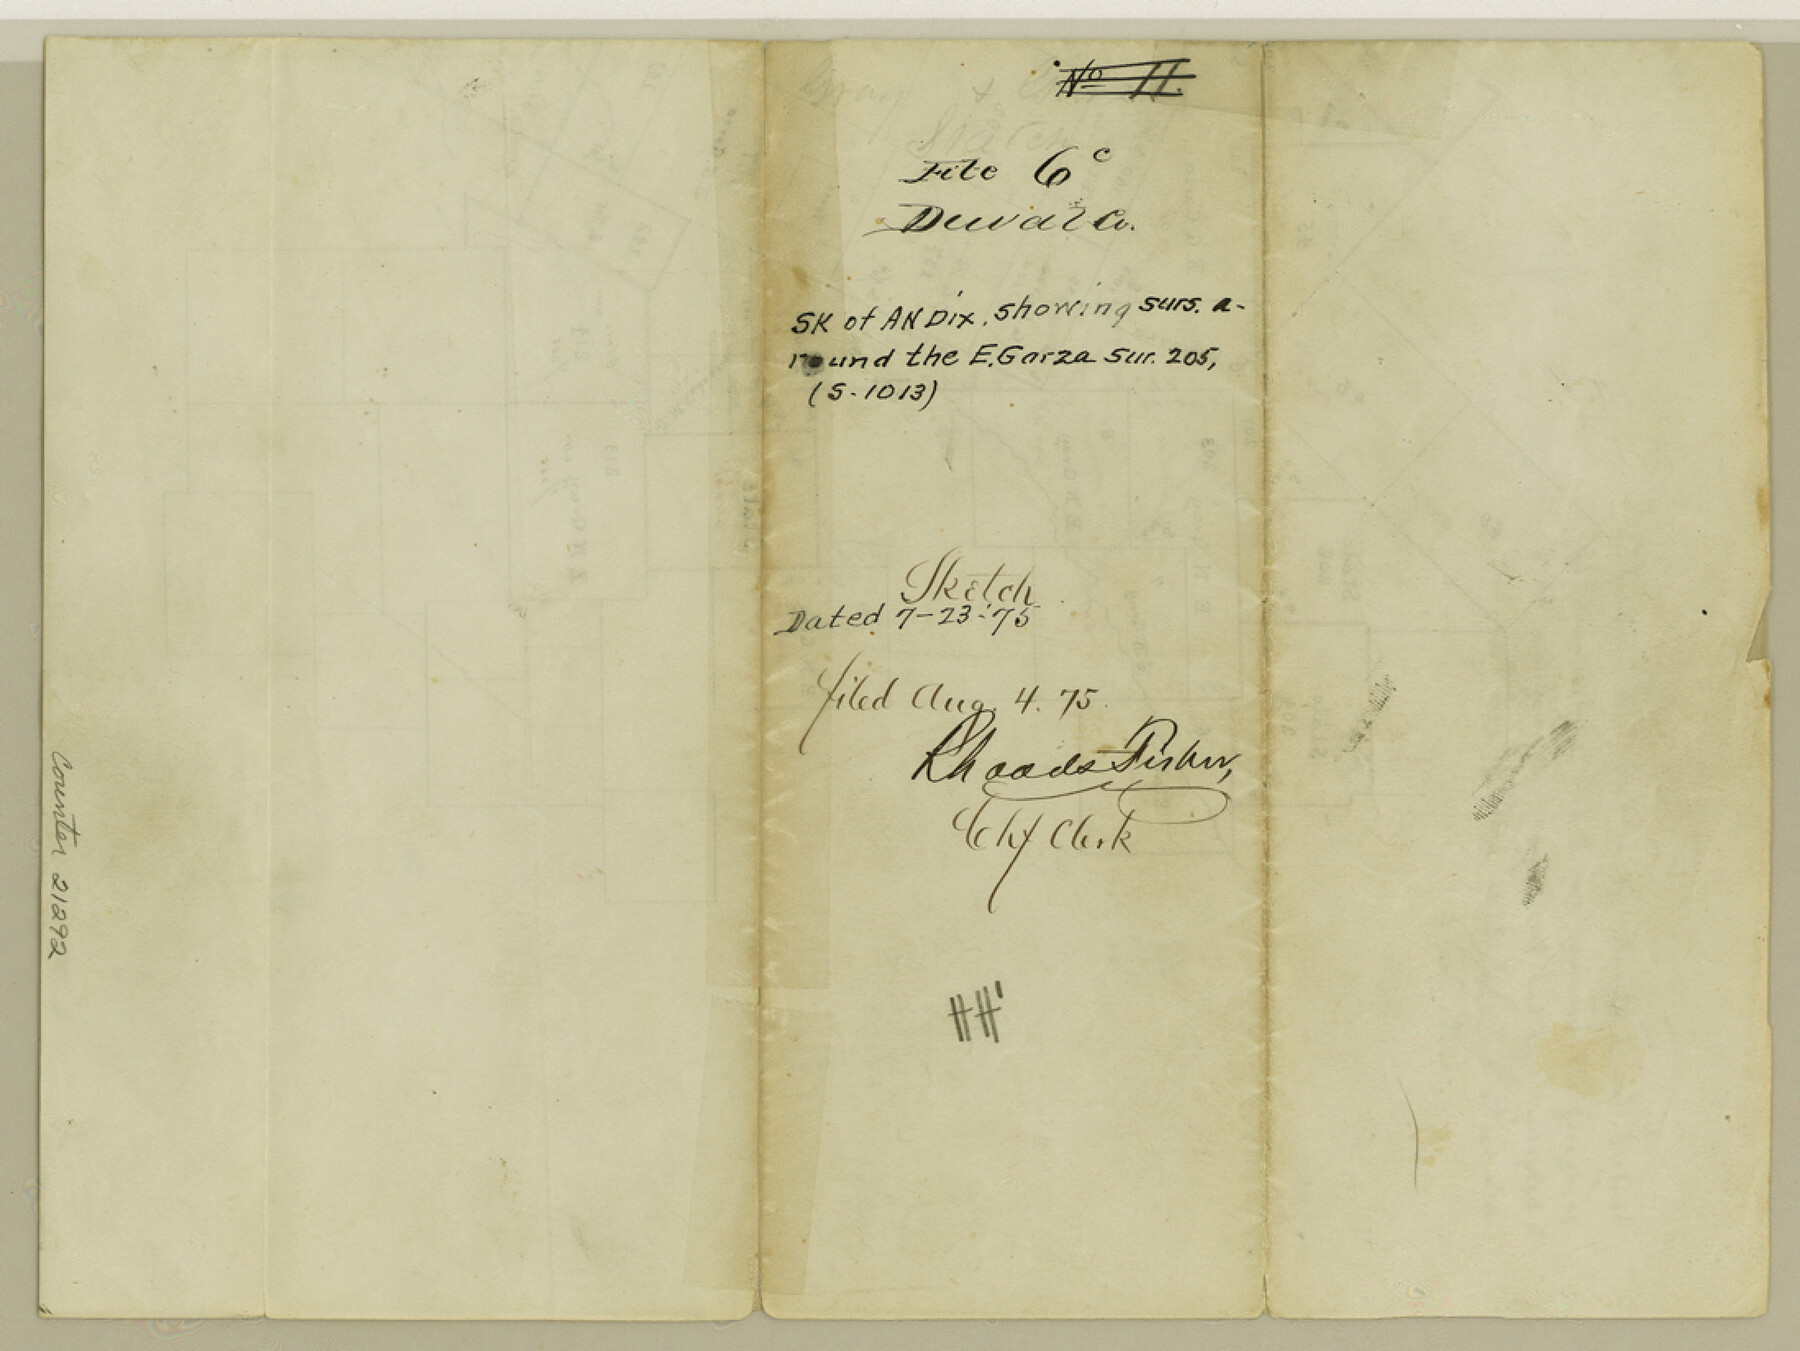 No 11.
File 6c
Duval Co.
SK of AN Dix, showing surs. a-
round the E. Garza Sur. 205,
(S-1013)
Sketch
Dated 7-23-'75
Filed Aug. 4. 75.
Rhoads Fisher,
Chf Clerk
Counter 21292